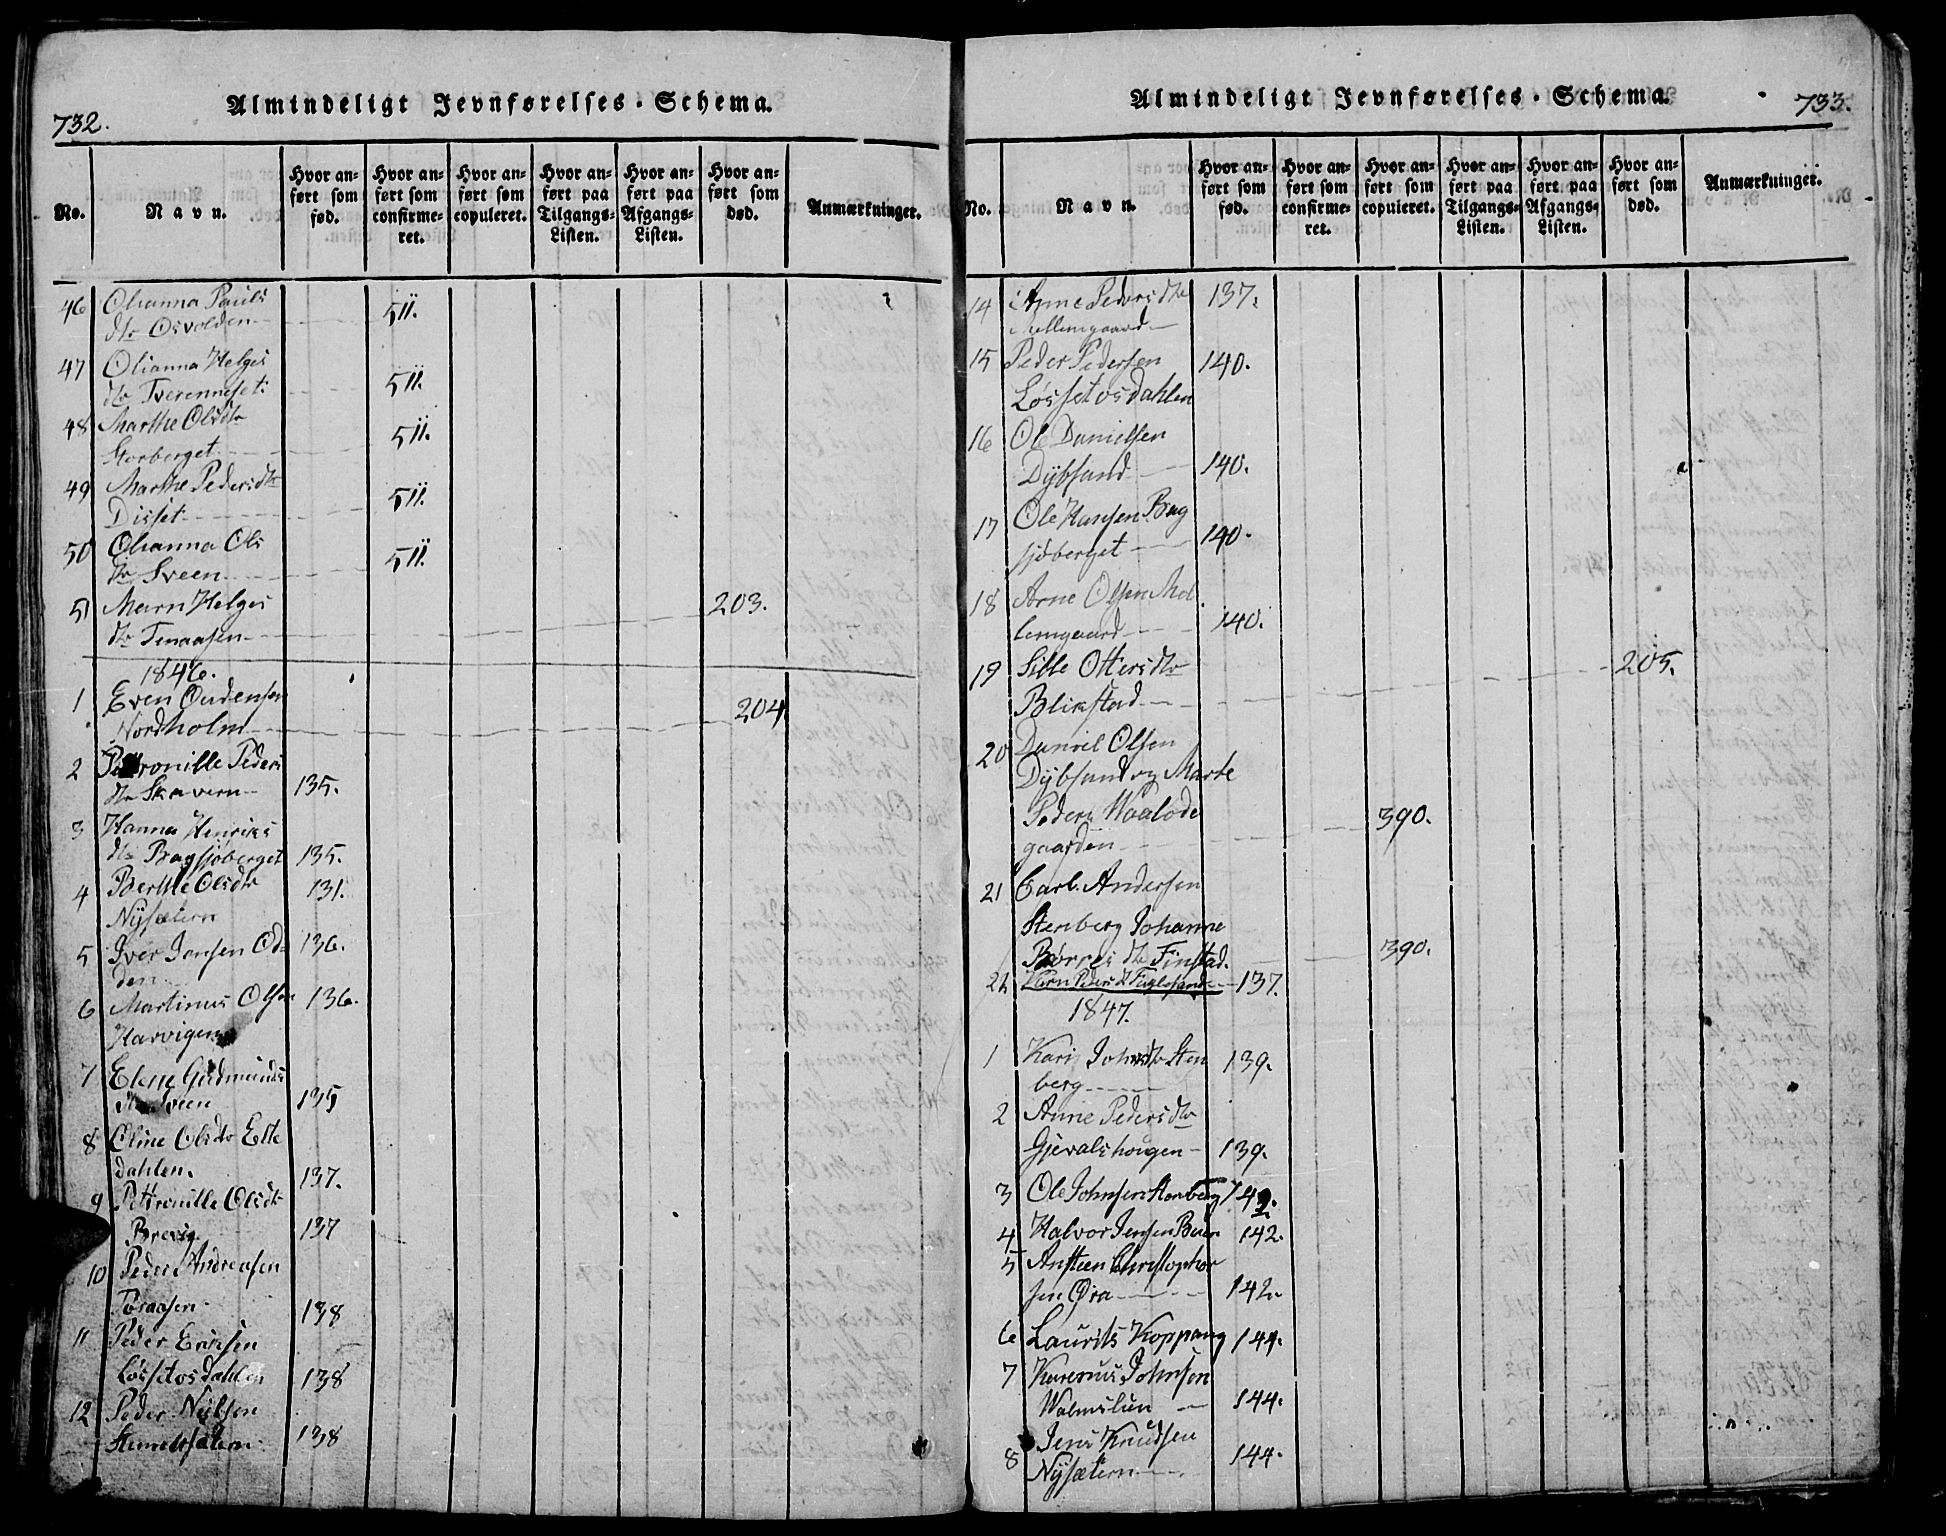 732.
Almindeligt Jevnførelses-Schema.
No.
Navn.
Hvor anført som fød.
Hvor anført som confirmeret.
Hvor anført som copuleret.
Hvor anført paa Tilgangs-Listen.
Hvor anført paa Afgangs-Listen.
Hvor anført som død.
Anmærkninger.
46 Olianna Pauls
dtr Osvolden 511.
47 Olianna Helges
dtr Tverenneset 511.
48 Marthe Olsdtr
Storberget 511.
49 Marthe Pedersdtr
Disset 511.
50 Olianna Ols
dtr Sveen 511.
51 Marn Helges 203.
dtr
1846.
1 Even Oudensen
Nordholm 204
2 Petronille Peders
dtr Skavern 135.
3 Hanna Henriks
dtr Bagsjøberget 135.
4 Berthe Olsdtr 131.
Nysætern
5 Iver Jonsen Od- 136.
den
6 Martinus Olsen 136.
Harvigen
7 Elene Gudmunds
135
8 Oline Olsdtr Elle
dahlen. 137.
9 Petronille Olsdtr
Brevig 137
10 Peder Andreasen
138
11 Peder Ericksen
Løssetosdahlen 138
12 Peder Nilsen
138
Almindeligt Jevnførelses-Schema.
733.
No.
Navn.
Hvor anført som fød.
Hvor anført som confirmeret.
Hvor anført som copuleret.
Hvor anført paa Tilgangs-Listen.
Hvor anført paa Afgangs-Listen.
Hvor anført som død.
Anmærkninger.
14 Anne Pedersdtr 137.
Mellemgaard
15 Peder Pedersen 140.
Løssetosdahlen
16 Ole Danielsen
Dybsand 140.
17 Ole Hansen Bag
sjøberget 140.
18 Arne Olsen Mel
lemgaard 140.
19 Sille Ottersdtr 205.
Blikstad
20 Daniel Olsen
Dybsand og Marte
Peders
gaarden 390.
21 Carl Andersen
Stenberg Johanne
Børresdtr Finstad. 390.
22 Karn Pedersdtr Fuglesand 137.
1847.
1 Kari Johnsdtr Sten
berg 139.
2 Anne Pedersdtr
Gjevalshougen 139.
3 Ole Johnsen Stenberg 142.
4 Halvor Jensen 142.
5 Ansteen Christophor
sen Øra 142.
6 Laurits Koppang 144.
7 Karenus Johnsen
144.
8 Jens Knudsen
Nysætern 144.